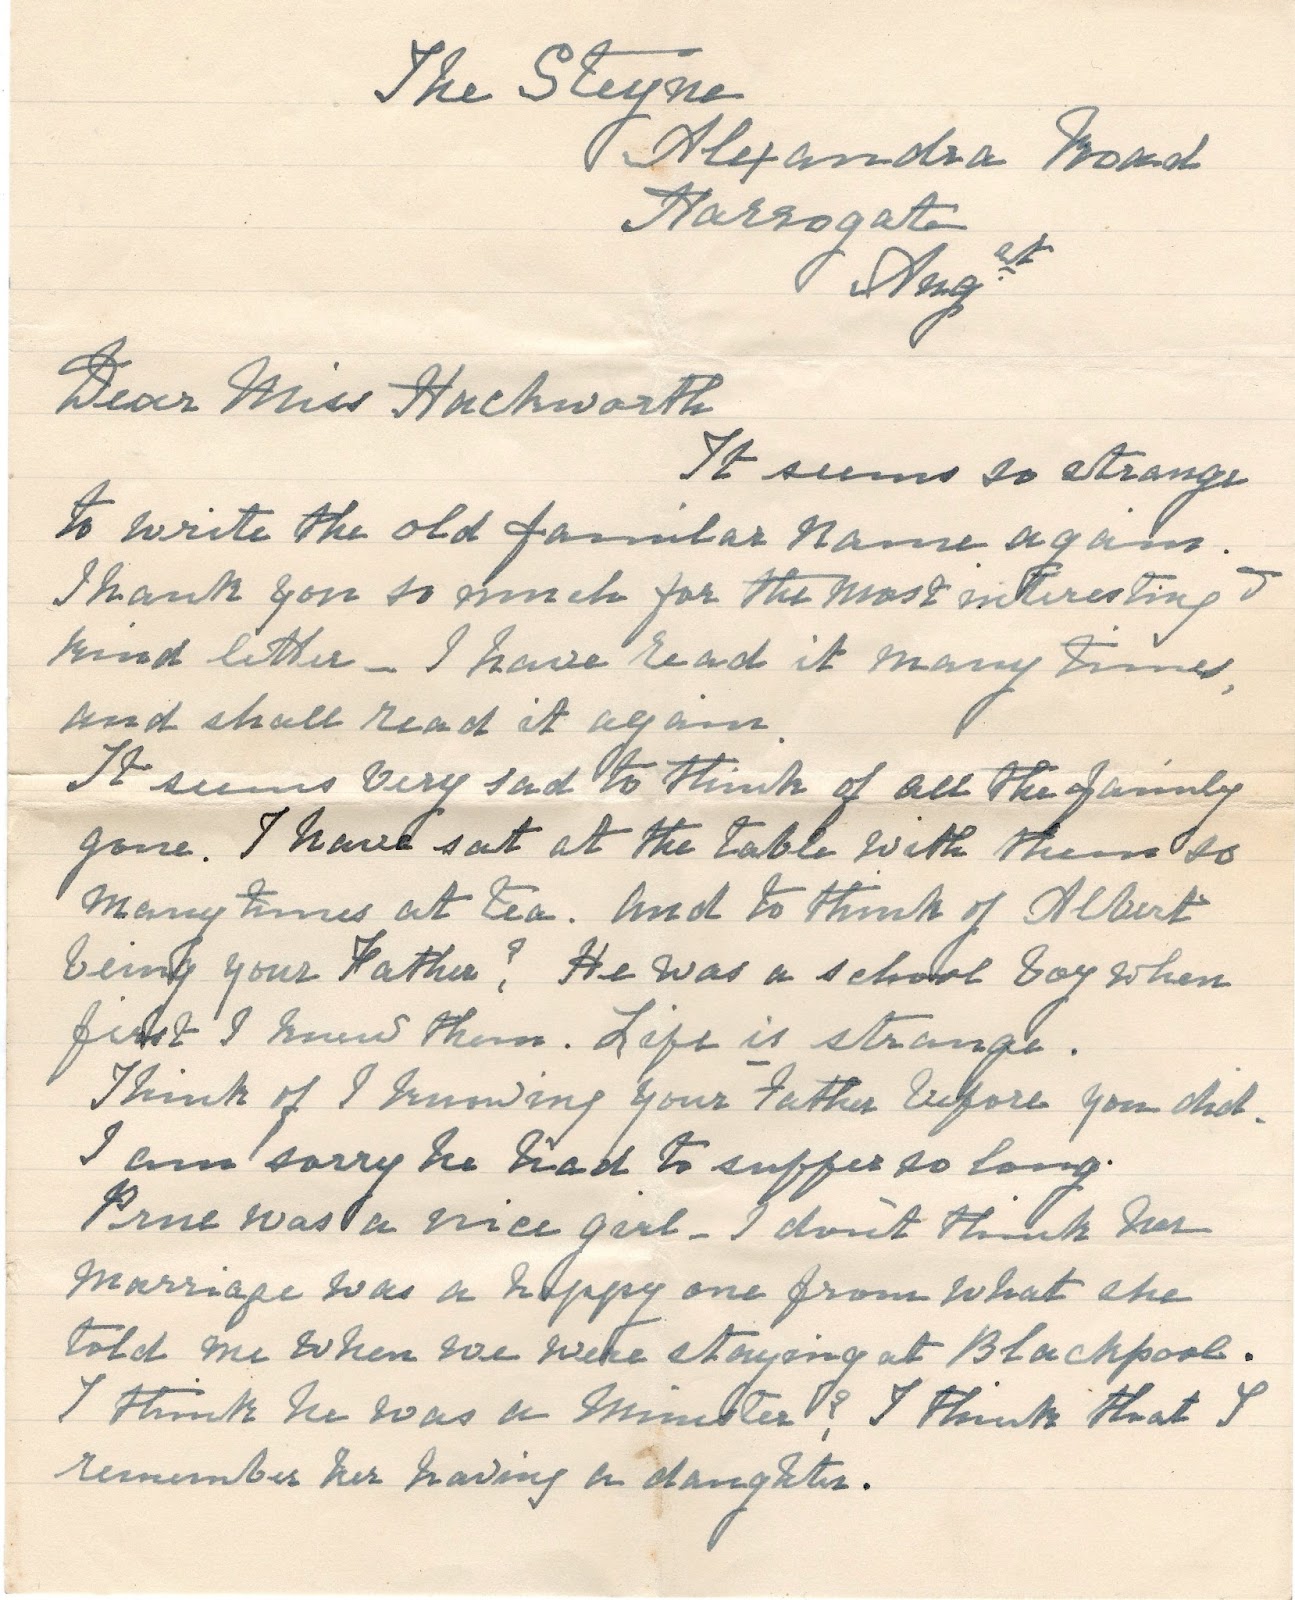 The Steyne
Alexandra Road
Harrogate
Aug st
Dear Miss Hackworth
It seems so strange
to write the old familar name again.
Thank you so much for the most interesting &
kind letter – I have read it many times,
and shall read it again.
It seems very sad to think of all the family
gone. I have sat at the table with them so
many times at tea. And to think of Albert
being your Father? He was a school boy when
first I knew them. Life is strange.
Think of I knowing your Father before you did.
I am sorry he had to suffer so long.
Prue was a nice girl – I don't think her
marriage was a happy one from what she
told me when we were staying at Blackpool.
I think he was a Minister? I think that I
remember her having a daughter.